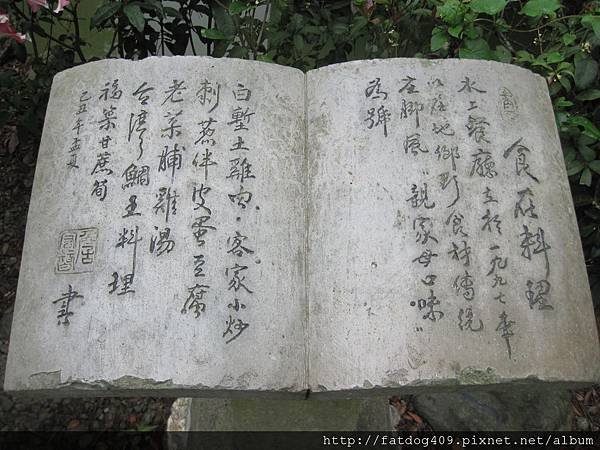 食在料理
水上餐廳立於一九九七年
以在地鄉野食材傳統
在腳氣"親家母口味"
為號
白斬土雞肉．客家小炒
刺蔥伴皮蛋豆腐
老菜脯雞湯
台灣鯛魚料理
福菜甘蔗筍
己丑年孟夏
書
http://fatdog409.pixnet.net/album